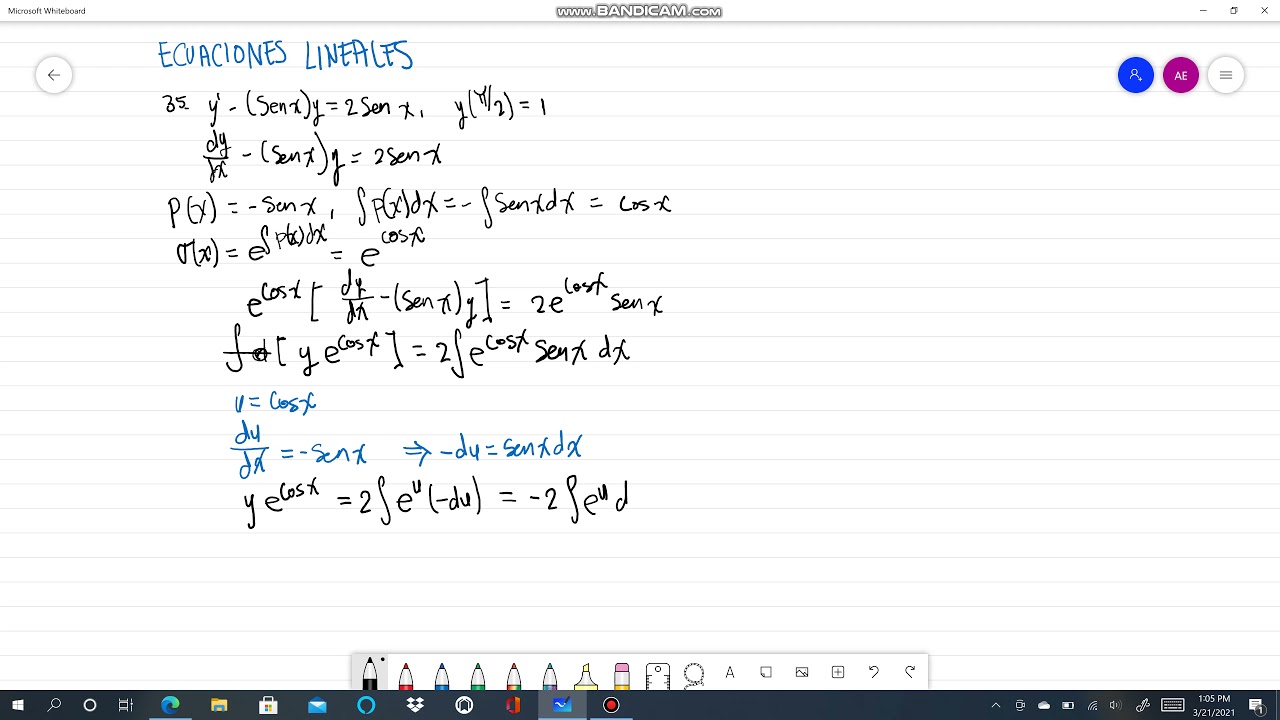 Microsoft Whiteboard
www.BANDICAM.com
ECUACIONES LINEALES
AE
35. y' - (Sen x)y = 2 Sen x, y(π/2) = 1
dy/dx - (Sen x)y = 2 sen x
P(x) = - sen x, ∫P(x)dx = - ∫Sen x dx = cos x
σ(x) = e^∫P(x)dx = e^cos x
e^cos x [dy/dx - (sen x)y] = 2e^cos x sen x
∫d[y e^cos x] = 2∫e^cos x sen x dx
u = cos x
du/dx = - sen x ⇒ -du = sen x dx
y e^cos x = 2∫e^u(-du) = -2∫e^u d
A
1:05 PM
3/21/2021